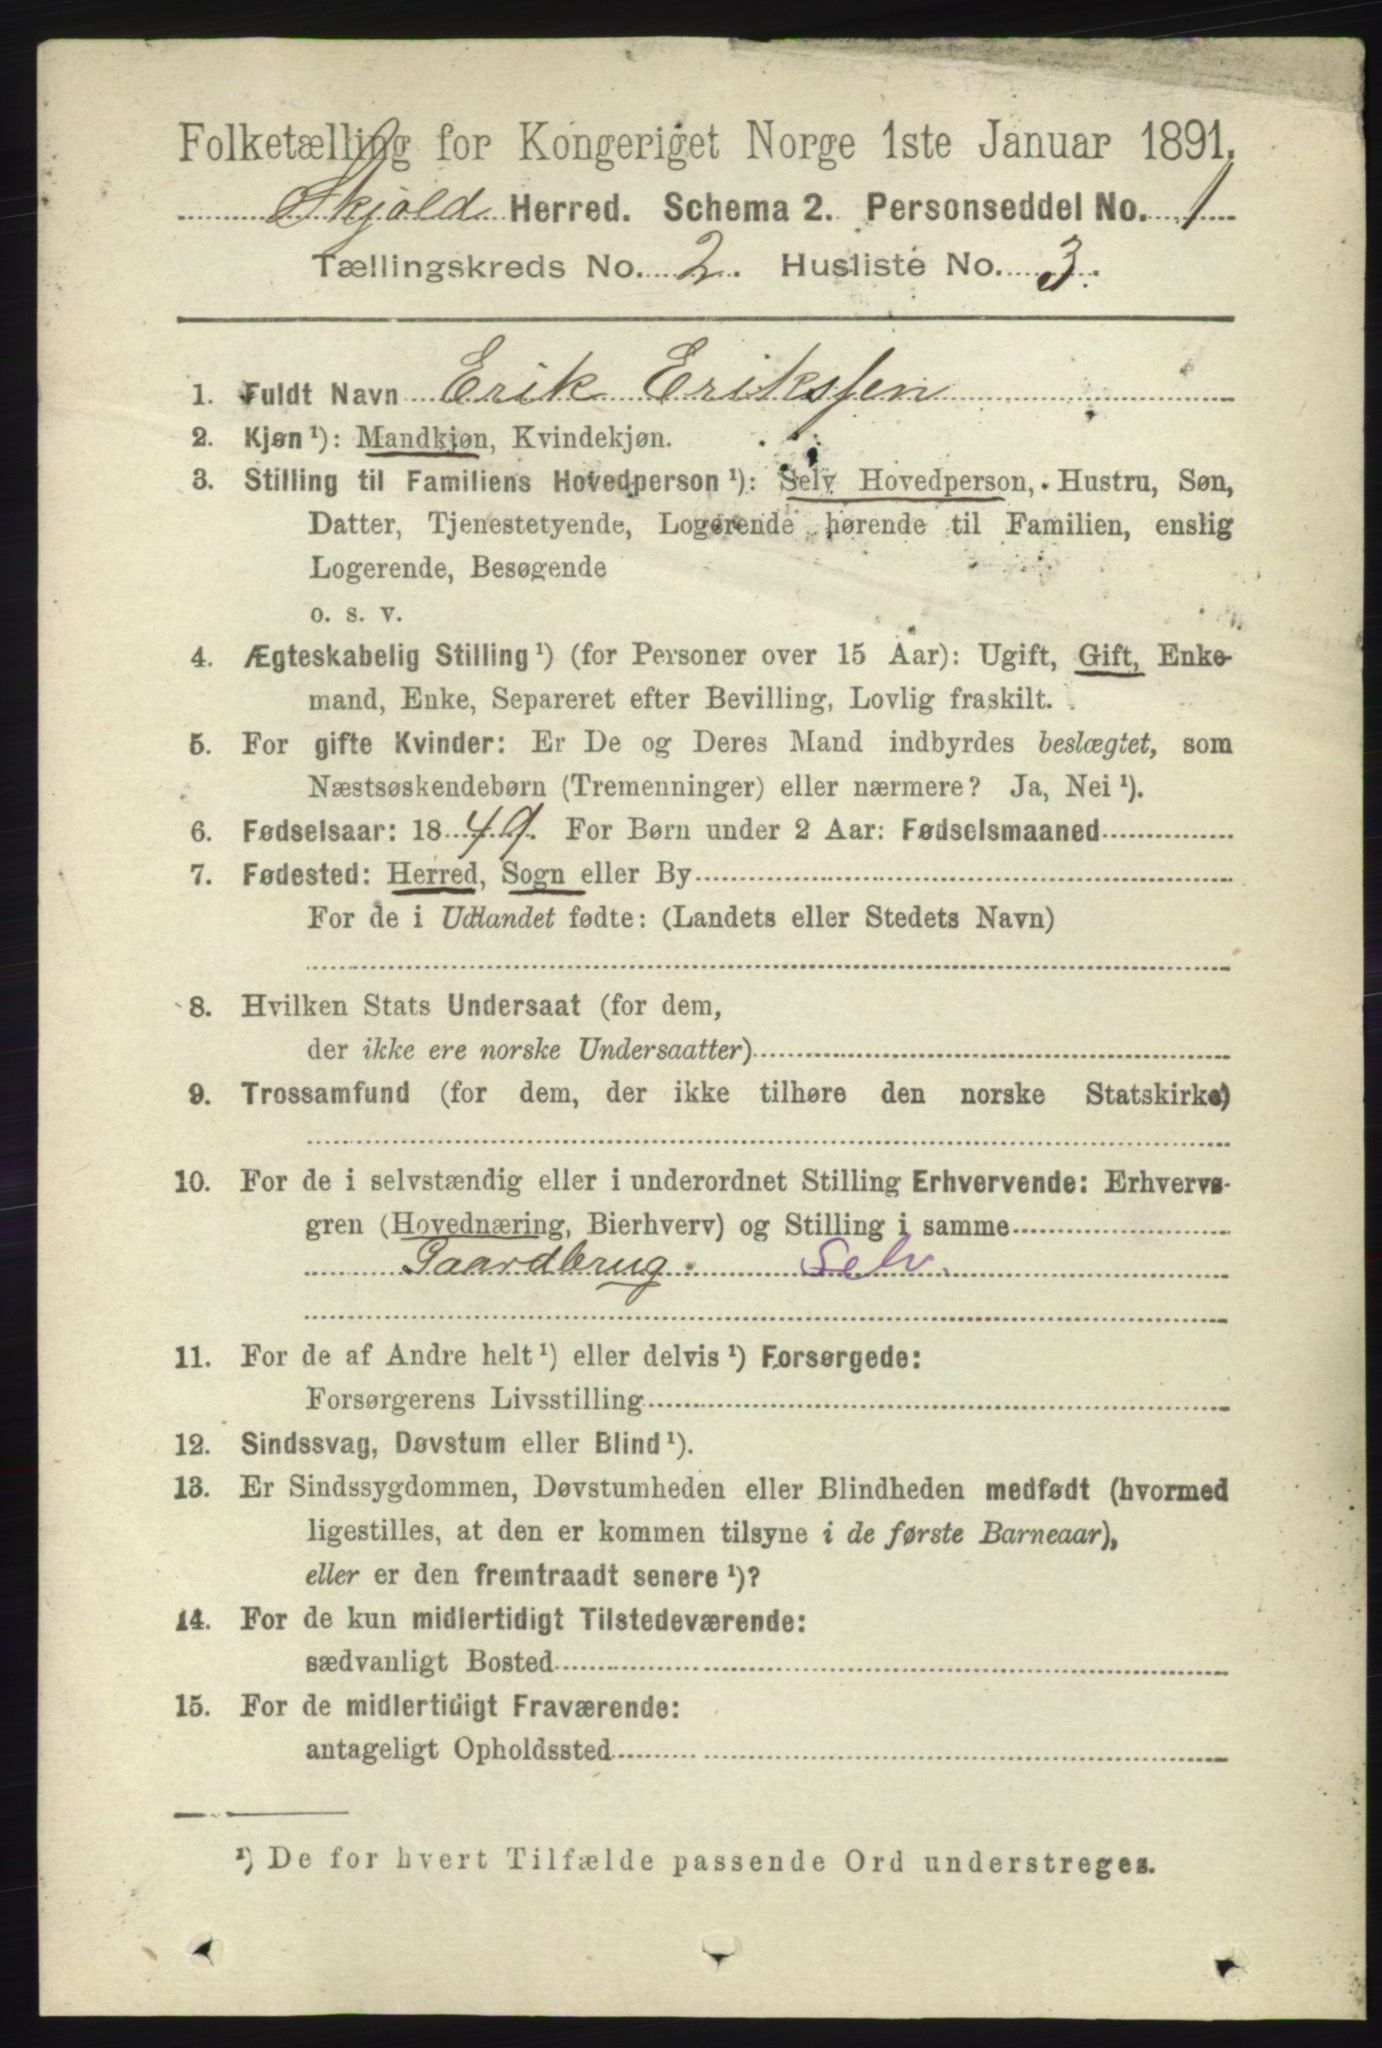 Folketælling for Kongeriget Norge 1ste Januar 1891.
Skjold Herred. Schema 2. Personseddel No. 1
Tællingskreds No. 2. Husliste No. 3.
1. Fuldt Navn Erik Eriksen
2. Kjøn¹): Mandkjøn, Kvindekjøn.
3. Stilling til Familiens Hovedperson¹): Selv Hovedperson, Hustru, Søn,
Datter, Tjenestetyende, Logerende hørende til Familien, enslig
Logerende, Besøgende
o. s. v.
4. Ægteskabelig Stilling¹) (for Personer over 15 Aar): Ugift, Gift, Enke-
mand, Enke, Separeret efter Bevilling, Lovlig fraskilt.
5. For gifte Kvinder: Er De og Deres Mand indbyrdes beslægtet, som
Næstsøskendebørn (Tremenninger) eller nærmere? Ja, Nei¹).
6. Fødselsaar: 1849. For Børn under 2 Aar: Fødselsmaaned
7. Fødested: Herred, Sogn eller By
For de i Udlandet fødte: (Landets eller Stedets Navn)
8. Hvilken Stats Undersaat (for dem,
der ikke ere norske Undersaatter)
9. Trossamfund (for dem, der ikke tilhøre den norske Statskirke)
10. For de i selvstændig eller i underordnet Stilling Erhvervende: Erhvervs-
gren (Hovednæring, Bierhverv) og Stilling i samme
Gaardbrug. Selv.
11. For de af Andre helt¹) eller delvis¹) Forsørgede:
Forsørgerens Livsstilling
12. Sindssvag, Døvstum eller Blind¹).
13. Er Sindssygdommen, Døvstumheden eller Blindheden medfødt (hvormed
ligestilles, at den er kommen tilsyne i de første Barneaar),
eller er den fremtraadt senere¹)?
14. For de kun midlertidigt Tilstedeværende:
sædvanligt Bosted
15. For de midlertidigt Fraværende:
antageligt Opholdssted
¹) De for hvert Tilfælde passende Ord understreges.